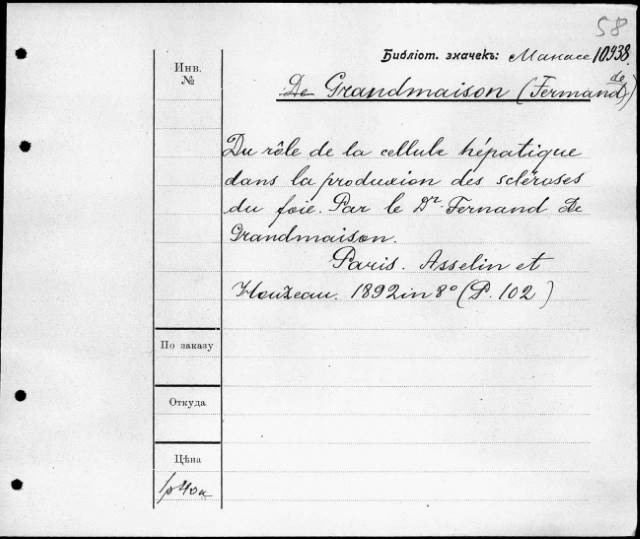 58
Библіот. значекъ: Манассе 10938.
Инв.
№
De Grandmaison (Fernand de)
Du rôle de la cellule hépatique
dans la produxion des scléroses
du foie. Par le Dr. Fernand De
Grandmaison.
Paris. Asselin et
Houzeau. 1892 in 8° (P. 102)
По заказу
Откуда
Цѣна
1р 40к